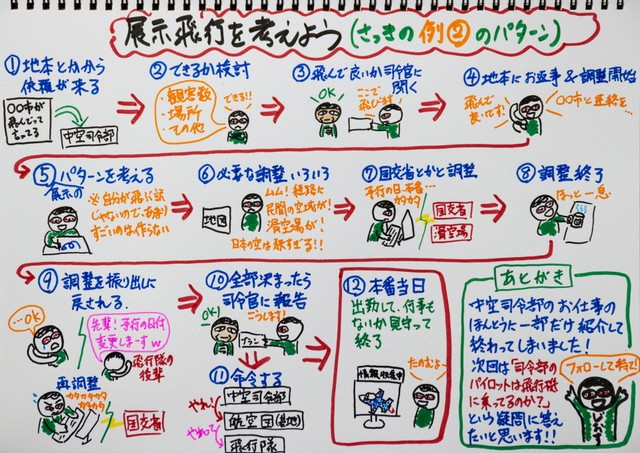 展示飛行を考えよう(さっきの例②のパターン)
①地本とかから
依頼が来る
〇〇市が
飛んでって
言ってる
中空司令部
②できるか検討
・観客数
・場所
・その他
できる!!
③飛んで良いか司令官に
聞く
OK
ここで
飛びます
④地本にお返事&調整開始
飛んで
良いです!
〇〇市と連絡を…
⑤パターンを考える
展示の
※自分が飛ぶ訳
じゃないので、あまり
すごいの作らない
⑥必要な調整いろいろ
地図
ムム!経路に
民間の空域が!
滑空場が!
日本の空は狭すぎる!!
⑦国交省とかと調整
予行の日、本番…
カタカタ
国交省
滑空場
⑧調整終了
ほっと一息
⑨調整を振り出しに
戻される
…OK
先輩!予行の日付
変更しまーすw
飛行隊の
後輩
再調整
カタカタカタカタ
カタカタ
国交省
⑩全部決まったら
司令官に報告
OK!
こうします!
プラン
⑪命令する
中空司令部
やれ!
航空団(基地)
やれって
飛行隊
⑫本番当日
出勤して、何事も
ないか見守って
終了
たのむよ…
情報収集中
あとがき
中空司令部のお仕事の
ほんとうに一部だけ紹介して
終わってしまいました!
次回は「司令部の
パイロットは飛行機に
乗ってるのか?」
という疑問に答え
たいと思います!!
フォローして待て!